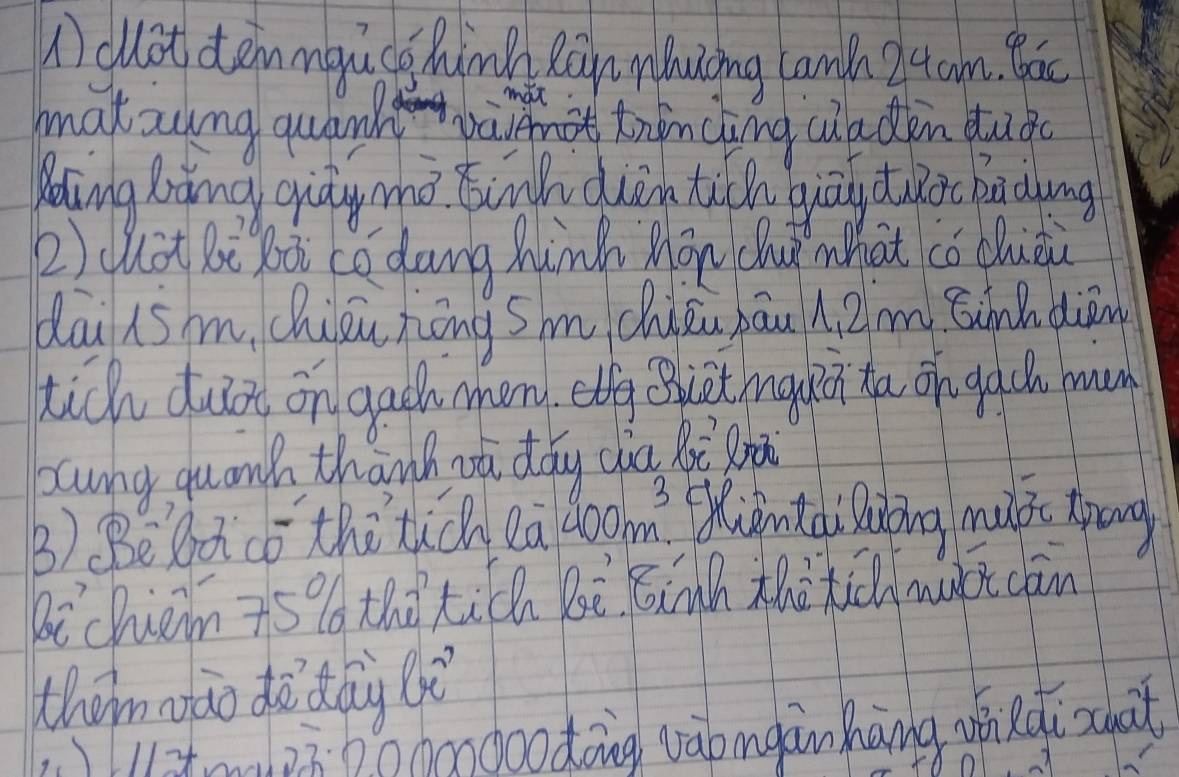 1) Một đèn ngủ có hình lập phương cạnh 24cm. Các
mặt xung quanh và mặt một trên cùng của đèn được
bằng giấy mờ. Tính diện tích giấy được sử dụng
2) Một bể bơi có dạng hình hộp chữ nhật có chiều
dài 15 m, chiều rộng 5 m chiều sâu 1,2 m. Tính diện
tích được ốp gạch men. Biết người ta ốp gạch men
xung quanh thành và đáy của bể bơi
3) Bể bơi có thể tích là 400m³. Hiện tại lượng nước trong
bể chiếm 75% thể tích bể. Tính thể tích nước cần
thêm vào để đầy bể
đồng vào ngân hàng với lãi xuất